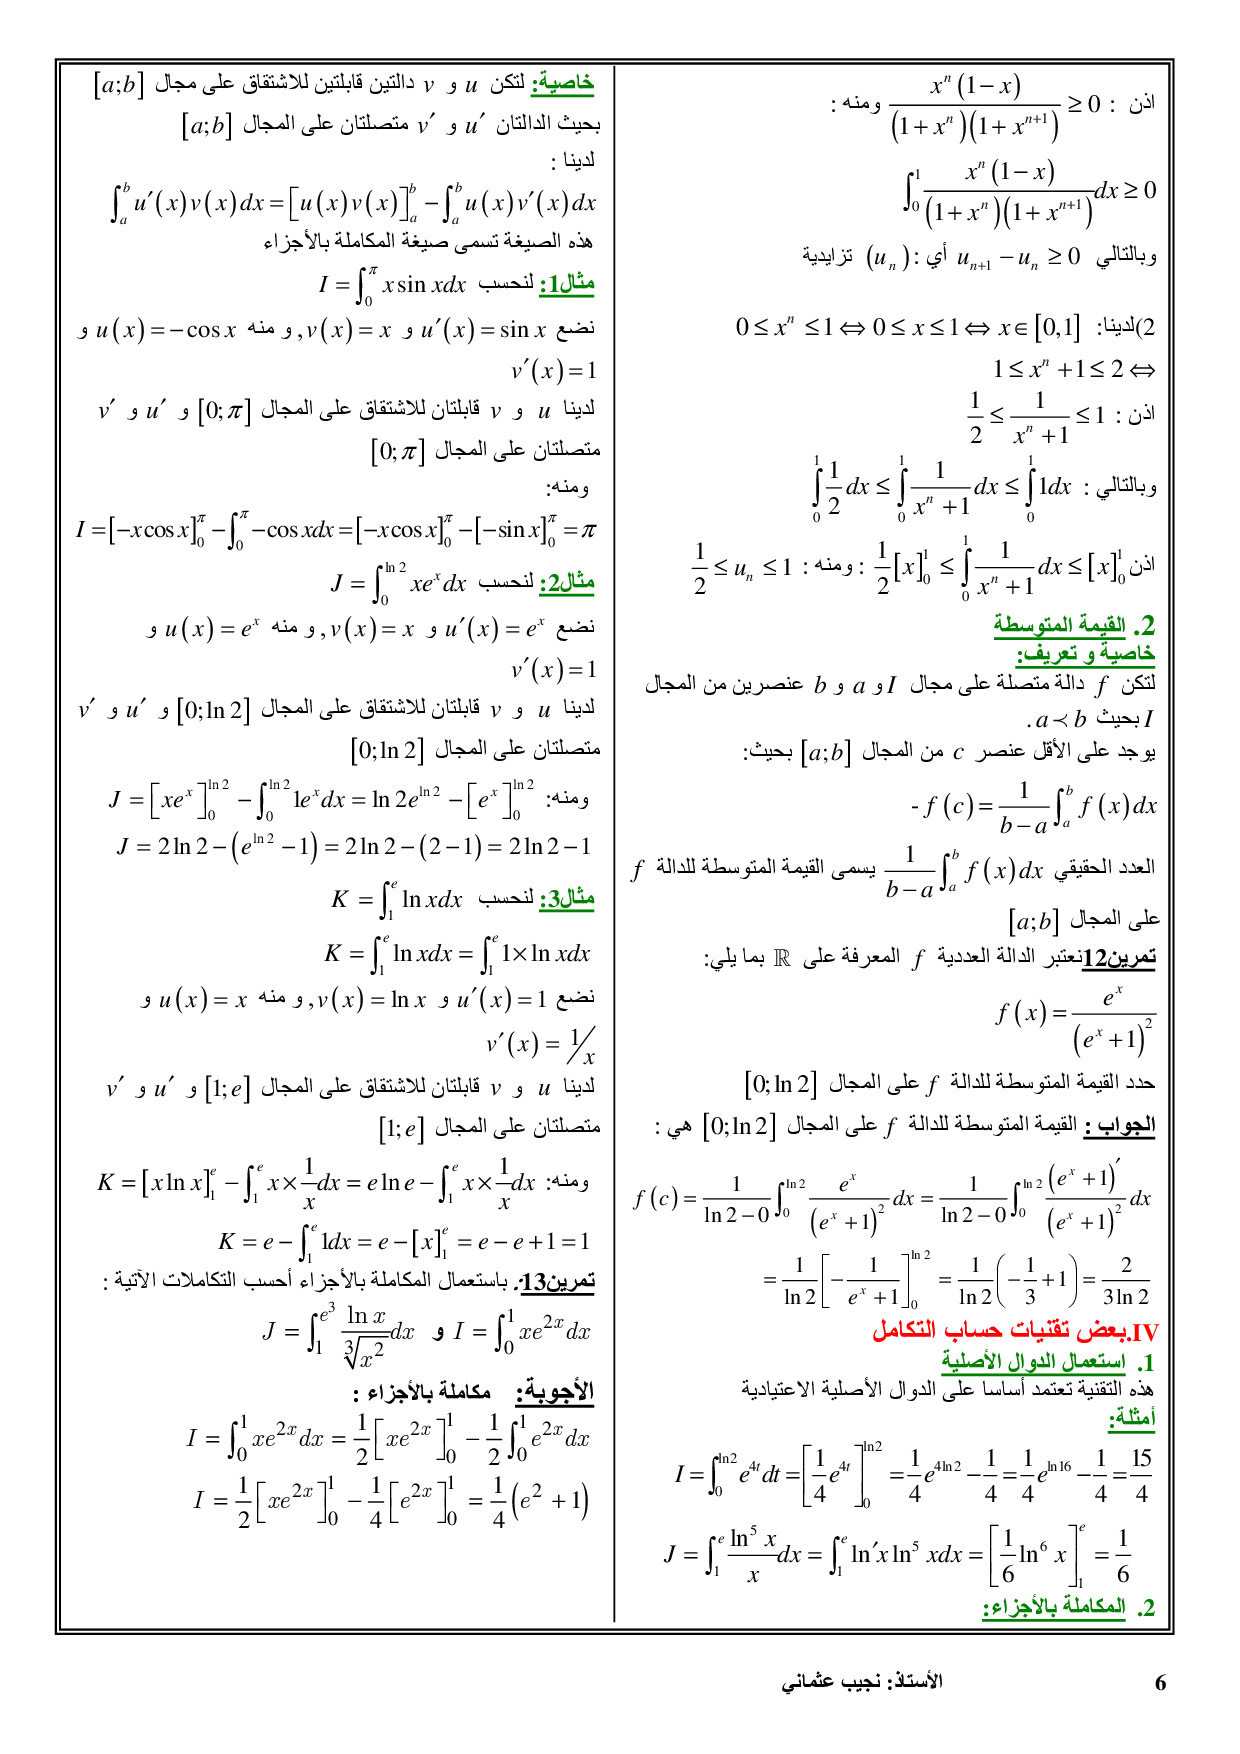 اذن : $\frac{x^n(1-x)}{(1+x^n)(1+x^{n+1})} \geq 0$ ومنه :
$\int_0^1 \frac{x^n(1-x)}{(1+x^n)(1+x^{n+1})}dx \geq 0$
وبالتالي $u_{n+1} - u_n \geq 0$ أي : $(u_n)$ تزايدية
2)لدينا: $0 \leq x^n \leq 1 \Leftrightarrow 0 \leq x \leq 1 \Leftrightarrow x \in [0,1]$
$1 \leq x^n + 1 \leq 2 \Leftrightarrow$
اذن : $\frac{1}{2} \leq \frac{1}{x^n+1} \leq 1$
وبالتالي : $\int_0^1 \frac{1}{2}dx \leq \int_0^1 \frac{1}{x^n+1}dx \leq \int_0^1 1dx$
اذن $\frac{1}{2}[x]_0^1 \leq \int_0^1 \frac{1}{x^n+1}dx \leq [x]_0^1$ : ومنه : $\frac{1}{2} \leq u_n \leq 1$
2. القيمة المتوسطة
خاصية و تعريف:
لتكن $f$ دالة متصلة على مجال $I$ و $a$ و $b$ عنصرين من المجال
$I$ بحيث $a \prec b$ .
يوجد على الأقل عنصر $c$ من المجال $[a;b]$ بحيث:
- $f(c) = \frac{1}{b-a}\int_a^b f(x)dx$
العدد الحقيقي $\frac{1}{b-a}\int_a^b f(x)dx$ يسمى القيمة المتوسطة للدالة $f$
على المجال $[a;b]$
تمرين12نعتبر الدالة العددية $f$ المعرفة على $\mathbb{R}$ بما يلي:
$f(x) = \frac{e^x}{(e^x+1)^2}$
حدد القيمة المتوسطة للدالة $f$ على المجال $[0;\ln 2]$
الجواب : القيمة المتوسطة للدالة $f$ على المجال $[0;\ln 2]$ هي :
$f(c) = \frac{1}{\ln 2-0}\int_0^{\ln 2} \frac{e^x}{(e^x+1)^2}dx = \frac{1}{\ln 2-0}\int_0^{\ln 2} \frac{(e^x+1)'}{(e^x+1)^2}dx$
$= \frac{1}{\ln 2}\left[-\frac{1}{e^x+1}\right]_0^{\ln 2} = \frac{1}{\ln 2}\left(-\frac{1}{3}+1\right) = \frac{2}{3\ln 2}$
IV.بعض تقنيات حساب التكامل
1. استعمال الدوال الأصلية
هذه التقنية تعتمد أساسا على الدوال الأصلية الاعتيادية
أمثلة:
$I = \int_0^{\ln 2} e^{4t}dt = \left[\frac{1}{4}e^{4t}\right]_0^{\ln 2} = \frac{1}{4}e^{4\ln 2} - \frac{1}{4} = \frac{1}{4}e^{\ln 16} - \frac{1}{4} = \frac{15}{4}$
$J = \int_1^e \frac{\ln^5 x}{x}dx = \int_1^e \ln' x \ln^5 xdx = \left[\frac{1}{6}\ln^6 x\right]_1^e = \frac{1}{6}$
2. المكاملة بالأجزاء:
خاصية: لتكن $u$ و $v$ دالتين قابلتين للاشتقاق على مجال $[a;b]$
بحيث الدالتان $u'$ و $v'$ متصلتان على المجال $[a;b]$
لدينا :
$\int_a^b u'(x)v(x)dx = [u(x)v(x)]_a^b - \int_a^b u(x)v'(x)dx$
هذه الصيغة تسمى صيغة المكاملة بالأجزاء
مثال1: لنحسب $I = \int_0^\pi x\sin xdx$
نضع $u'(x) = \sin x$ و $v(x) = x$ , و منه $u(x) = -\cos x$ و
$v'(x) = 1$
لدينا $u$ و $v$ قابلتان للاشتقاق على المجال $[0;\pi]$ و $u'$ و $v'$
متصلتان على المجال $[0;\pi]$
ومنه:
$I = [-x\cos x]_0^\pi - \int_0^\pi -\cos xdx = [-x\cos x]_0^\pi - [-\sin x]_0^\pi = \pi$
مثال2: لنحسب $J = \int_0^{\ln 2} xe^x dx$
نضع $u'(x) = e^x$ و $v(x) = x$ , و منه $u(x) = e^x$ و
$v'(x) = 1$
لدينا $u$ و $v$ قابلتان للاشتقاق على المجال $[0;\ln 2]$ و $u'$ و $v'$
متصلتان على المجال $[0;\ln 2]$
ومنه: $J = [xe^x]_0^{\ln 2} - \int_0^{\ln 2} 1e^x dx = \ln 2e^{\ln 2} - [e^x]_0^{\ln 2}$
$J = 2\ln 2 - (e^{\ln 2} - 1) = 2\ln 2 - (2-1) = 2\ln 2 - 1$
مثال3: لنحسب $K = \int_1^e \ln xdx$
$K = \int_1^e \ln xdx = \int_1^e 1 \times \ln xdx$
نضع $u'(x) = 1$ و $v(x) = \ln x$ , و منه $u(x) = x$ و
$v'(x) = 1/x$
لدينا $u$ و $v$ قابلتان للاشتقاق على المجال $[1;e]$ و $u'$ و $v'$
متصلتان على المجال $[1;e]$
ومنه: $K = [x\ln x]_1^e - \int_1^e x \times \frac{1}{x}dx = e\ln e - \int_1^e x \times \frac{1}{x}dx$
$K = e - \int_1^e 1dx = e - [x]_1^e = e - e + 1 = 1$
تمرين13: باستعمال المكاملة بالأجزاء أحسب التكاملات الآتية :
$I = \int_0^1 xe^{2x}dx$ و $J = \int_1^{e^3} \frac{\ln x}{\sqrt[3]{x^2}}dx$
الأجوبة: مكاملة بالأجزاء :
$I = \int_0^1 xe^{2x}dx = \frac{1}{2}[xe^{2x}]_0^1 - \frac{1}{2}\int_0^1 e^{2x}dx$
$I = \frac{1}{2}[xe^{2x}]_0^1 - \frac{1}{4}[e^{2x}]_0^1 = \frac{1}{4}(e^2+1)$
الأستاذ: نجيب عثماني
6